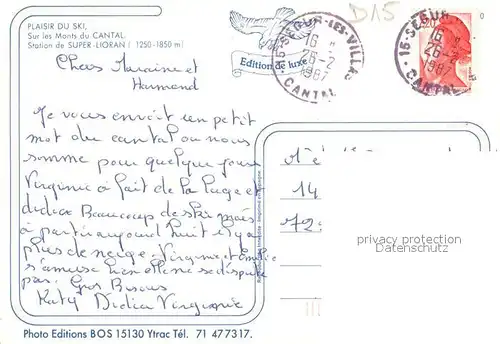 PLAISIR DU SKI,
Sur les Monts du CANTAL.
Station de SUPER-LIORAN (1250-1850 m)
D15
Edition de luxe
15-SEGUR-LES-VILLAS
16 H
26-2
1987
CANTAL
15-SEGUR
16
26-2
1987
CANTAL
2,20
Chers Auraine et
Harmand
Je vous envoit un petit
mot du cantal ou nous
somme pour quelque jours
Virginie à fait de la luge et
didier Beaucoup de ski mais
à partir aujourd huit il y a
plus de neige. Virginie et
s'amuse bien elle ne se dispute
pas. Gros Bisous
Katy Didier Virginie
14
72
privacy protection
DELCAMPE.NET
Photo Editions BOS 15130 Ytrac Tél. 71 47 73 17.